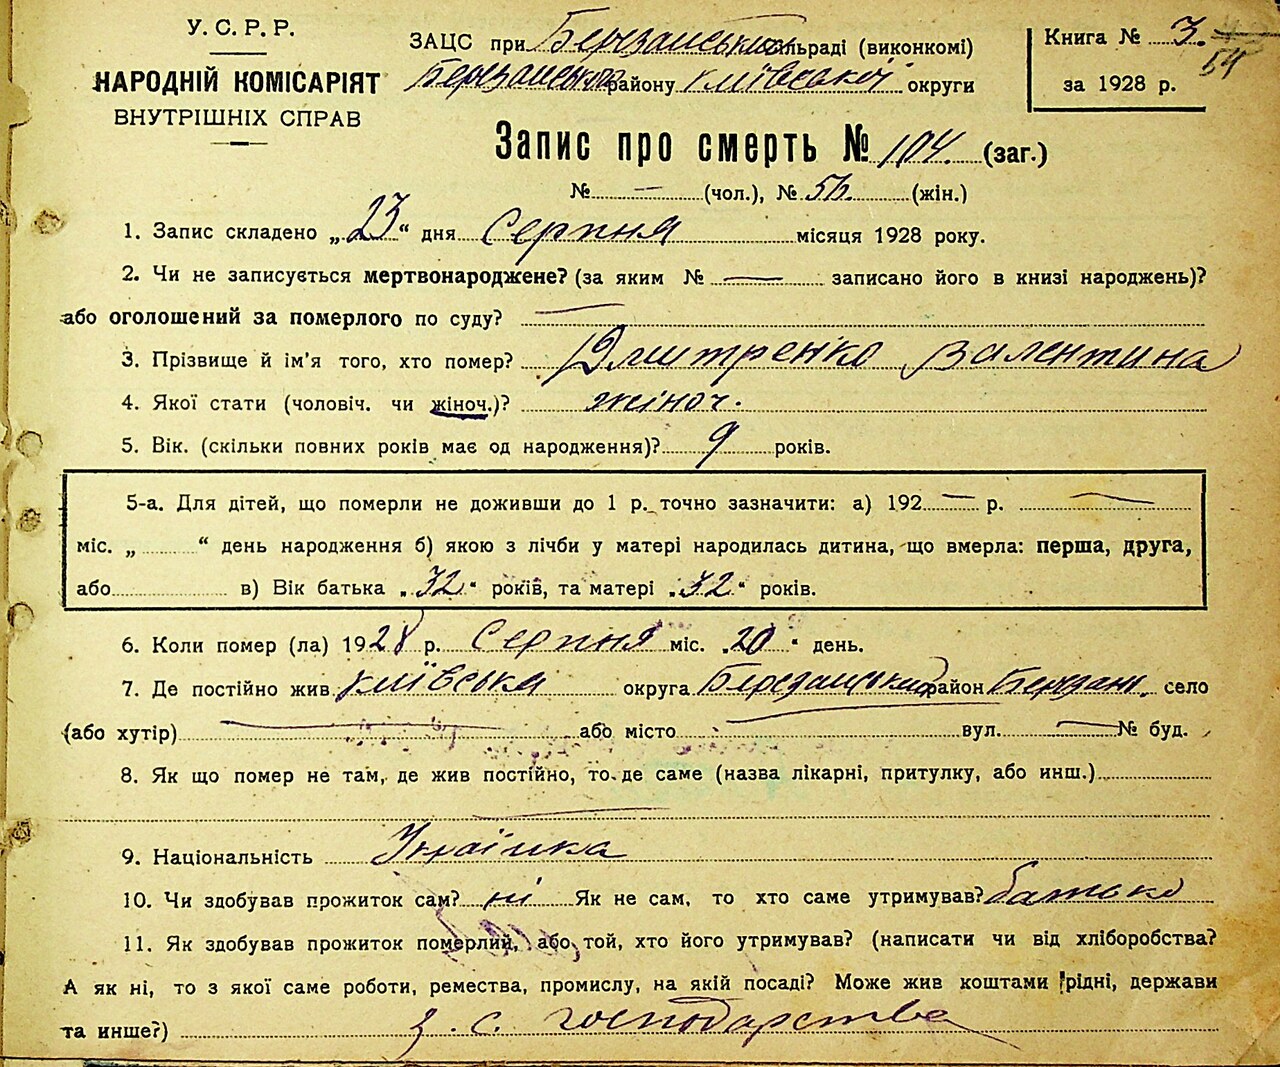 У. С. Р. Р.
НАРОДНІЙ КОМІСАРІЯТ
ВНУТРІШНІХ СПРАВ
ЗАЦС при Березанському сільраді (виконкомі)
Березанського району Київської округи
Книга № 3.
54
за 1928 р.
Запис про смерть № 104. (заг.)
№ — (чол.), № 56. (жін.)
1. Запис складено „23“ дня Серпня місяця 1928 року.
2. Чи не записується мертвонароджене? (за яким № — записано його в книзі народжень)?
або оголошений за померлого по суду? —
3. Прізвище й ім'я того, хто помер? Дмитренко Валентина
4. Якої стати (чоловіч. чи жіноч.)? жіноч.
5. Вік. (скільки повних років має од народження)? 9 років.
5-а. Для дітей, що померли не доживши до 1 р. точно зазначити: а) 192 — р. —
міс. „ “ день народження б) якою з лічби у матері народилась дитина, що вмерла: перша, друга,
або в) Вік батька „32“ років, та матері „32“ років.
6. Коли помер (ла) 1928 р. Серпня міс. „20“ день.
7. Де постійно жив Київська округа Березанський район Березань село
(або хутір) — або місто — вул. — № буд.
8. Як що помер не там, де жив постійно, то де саме (назва лікарні, притулку, або инш.)
—
9. Національність Українка
10. Чи здобував прожиток сам? ні Як не сам, то хто саме утримував? батько
11. Як здобував прожиток померлий, або той, хто його утримував? (написати чи від хліборобства?
А як ні, то з якої саме роботи, ремества, промислу, на якій посаді? Може жив коштами рідні, держави
та инше?) з. с. господарства